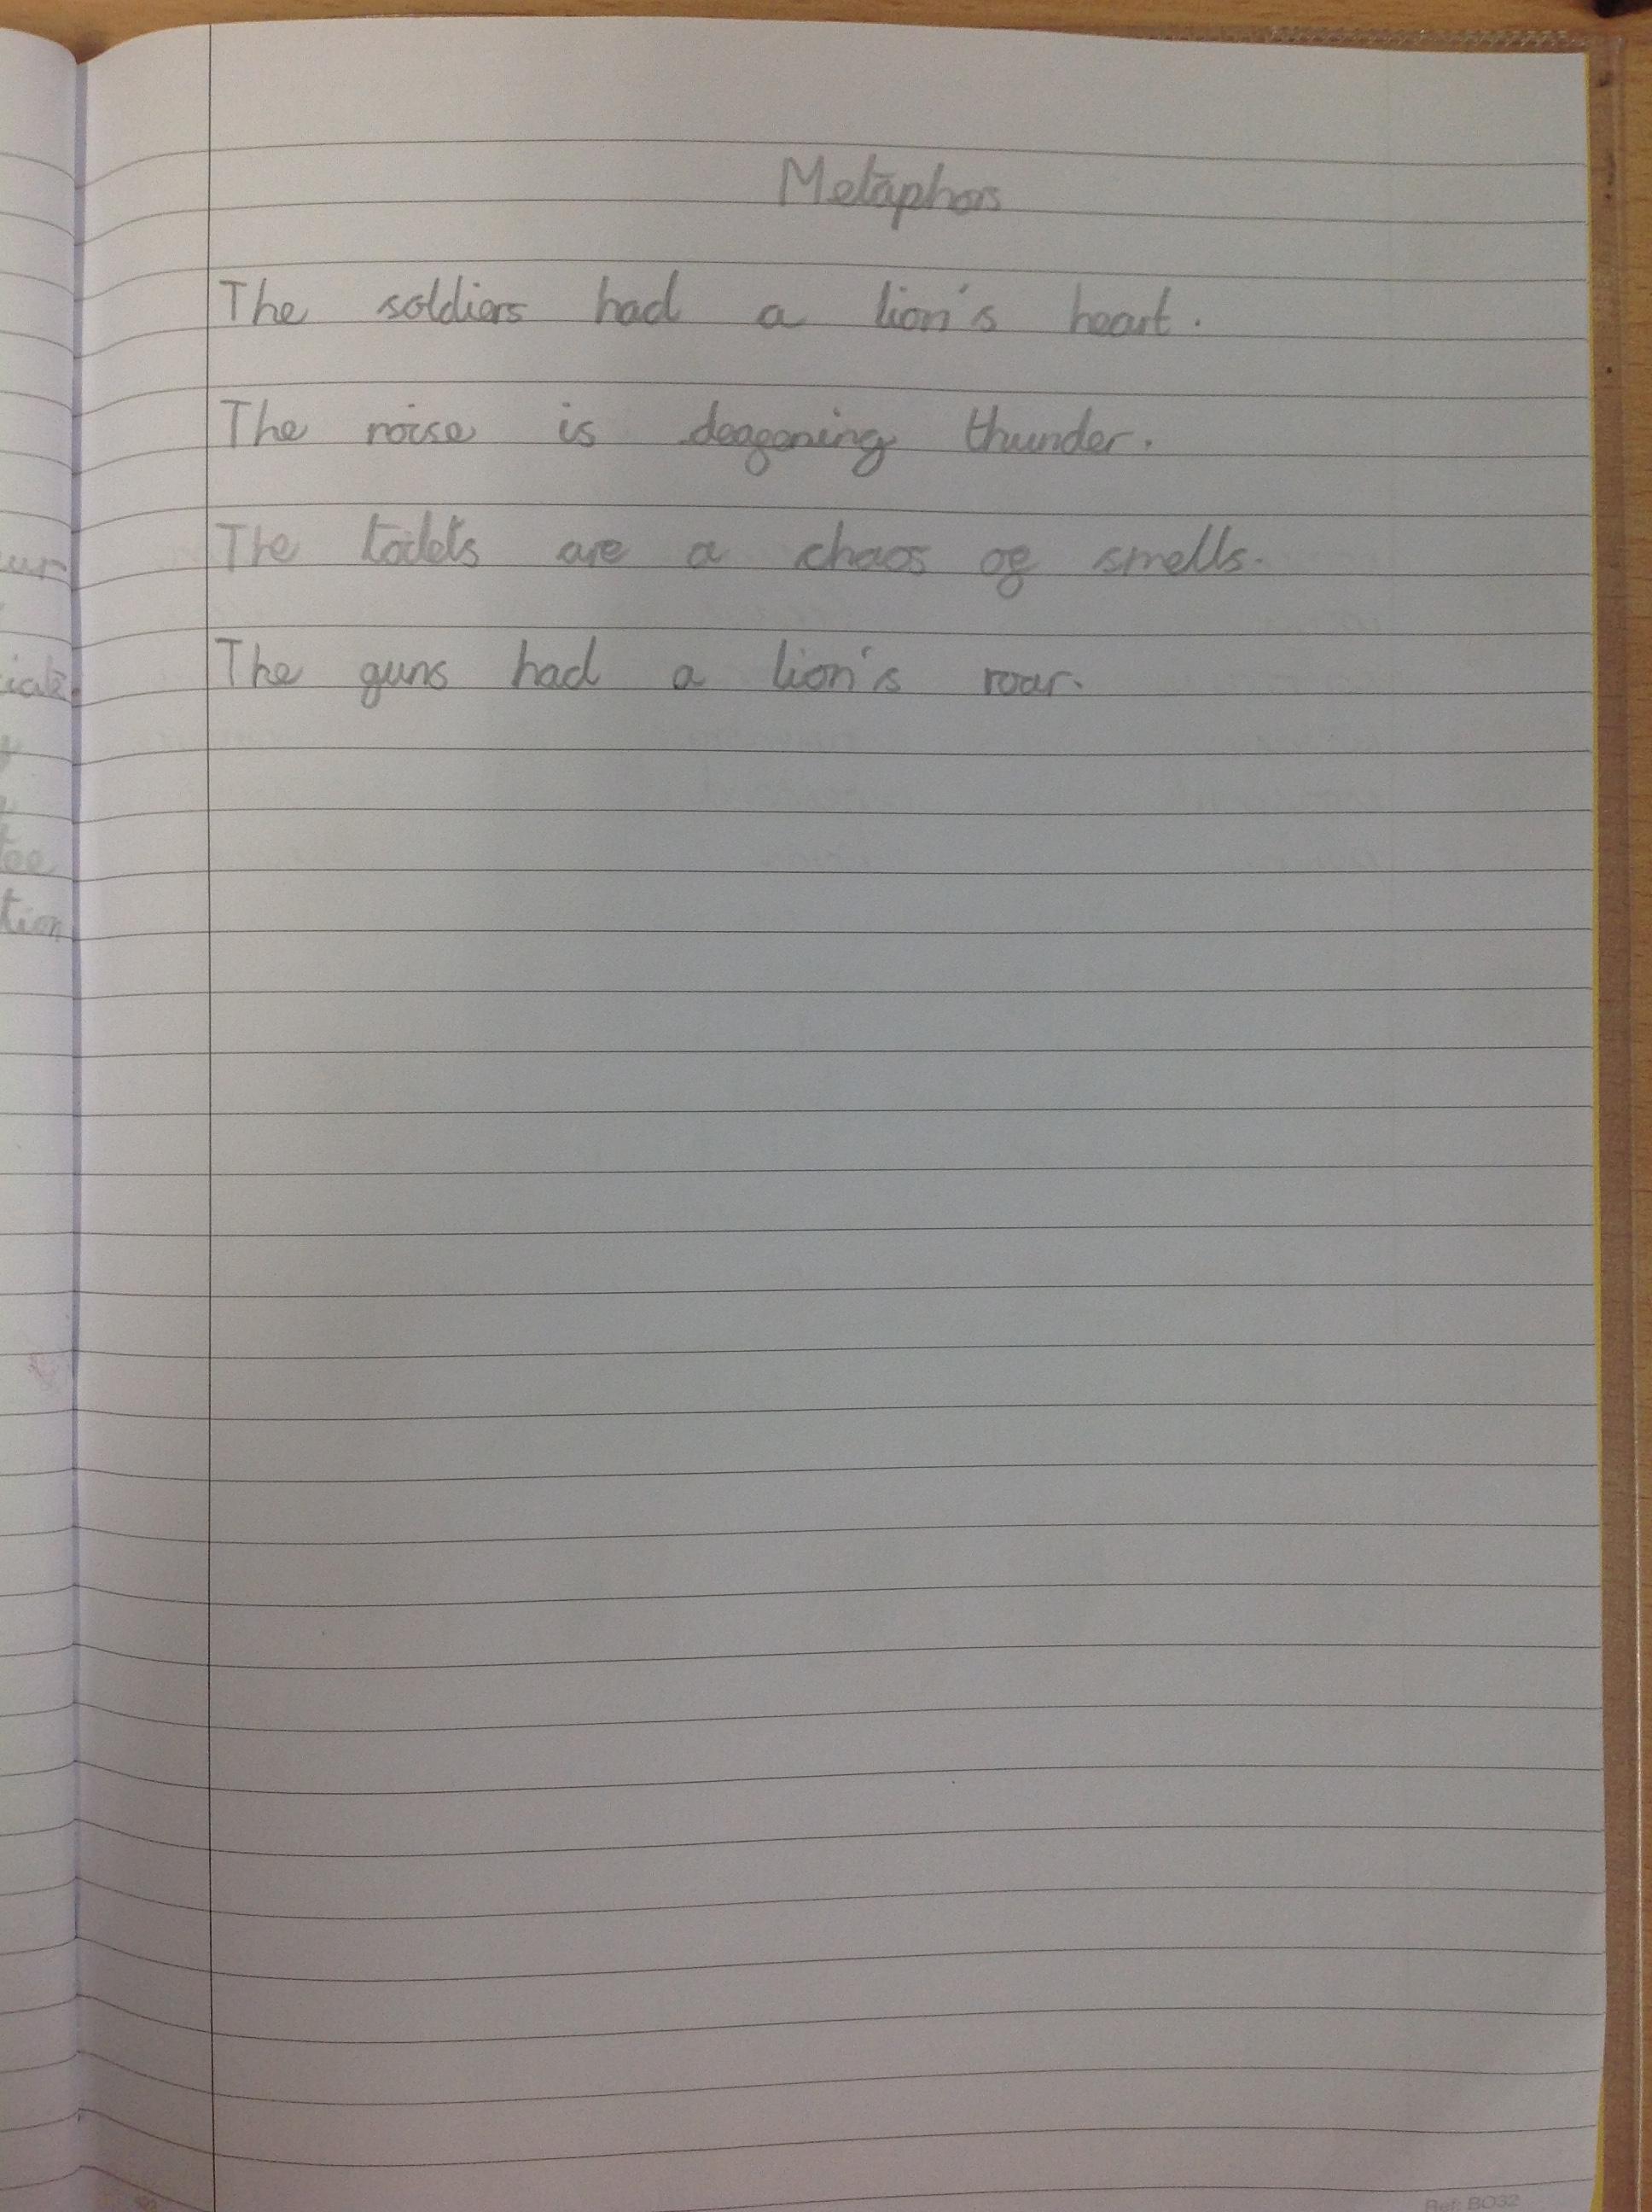 Metaphors
The soldiers had a lion's heart.
The noise is deafening thunder.
The toilets are a chaos of smells.
The guns had a lion's roar.
tee
tion
Ref: BO32